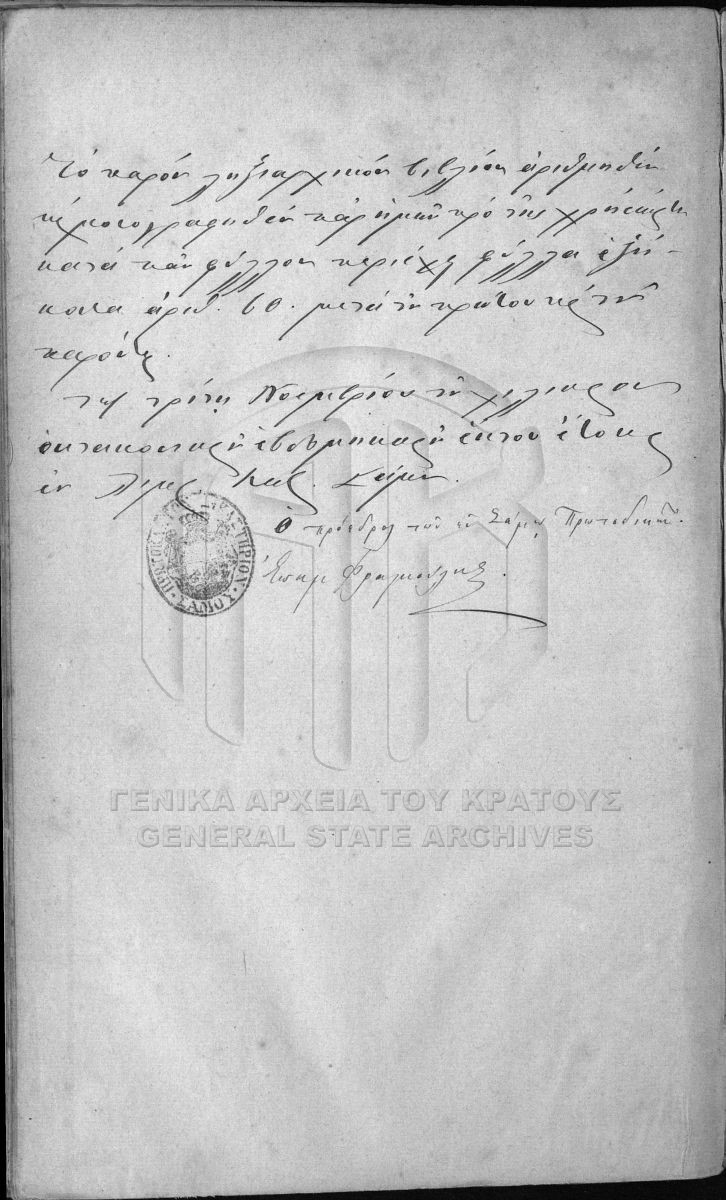 Τὸ παρὸν ληξιαρχικὸν βιβλίον ἀριθμηθὲν
κ μονογραφηθὲν παρ' ἡμῶν πρὸ τῆς χρήσεώς του
κατὰ πᾶν φύλλον περιέχει φύλλα ἑξή-
κοντα ἀριθ. 60. μετὰ τοῦ πρώτου κ τοῦ
παρόντος.
τῇ τρίτῃ Νοεμβρίου τοῦ χιλιοστοῦ
ὀκτακοσιοστοῦ ἑβδομηκοστοῦ ἕκτου ἔτους
ἐν Σάμου.
Ὁ πρόεδρος τῶν ἐν Σάμῳ Πρωτοδικῶν.
Ἐπαμ Φραγκούλης.
ΠΡΩΤΟΔΙΚΕΙΟΝ ΣΑΜΟΥ
ΓΕΝΙΚΑ ΑΡΧΕΙΑ ΤΟΥ ΚΡΑΤΟΥΣ
GENERAL STATE ARCHIVES